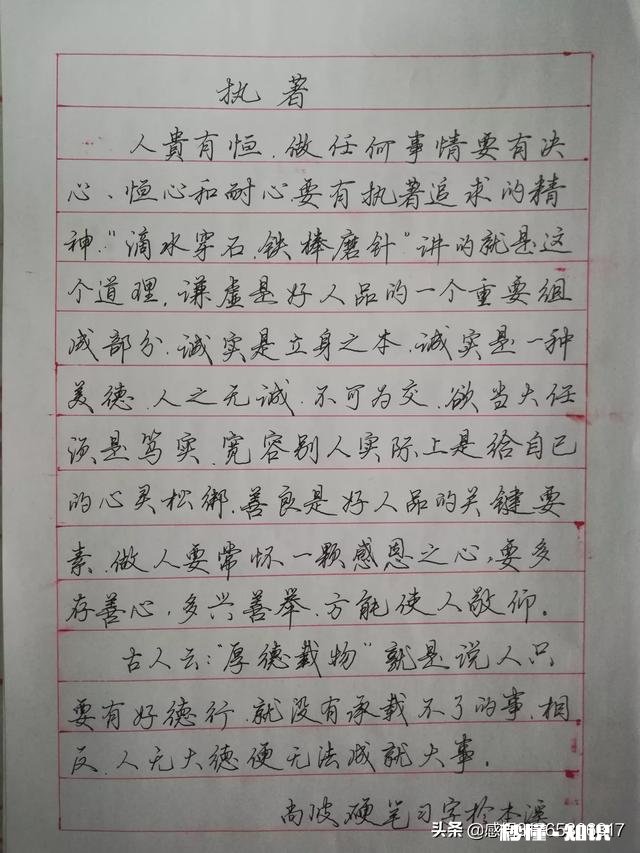 执著
人貴有恒.做任何事情要有决
心、恒心和耐心.要有执著追求的精
神."滴水穿石.铁棒磨针"讲的就是这
个道理.谦虚是好人品的一个重要组
成部分.诚实是立身之本.诚实是一种
美德.人之无诚.不可为交.欲当大任
须是笃实.宽容别人实际上是给自己
的心灵松绑.善良是好人品的关键要
素.做人要常怀一颗感恩之心.要多
存善心,多兴善举.方能使人敬仰.
古人云:"厚德载物"就是说人只
要有好德行.就没有承载不了的事.相
反.人无大德便无法成就大事.
尚波硬笔习字於本溪
头条 @感
秒懂·知识